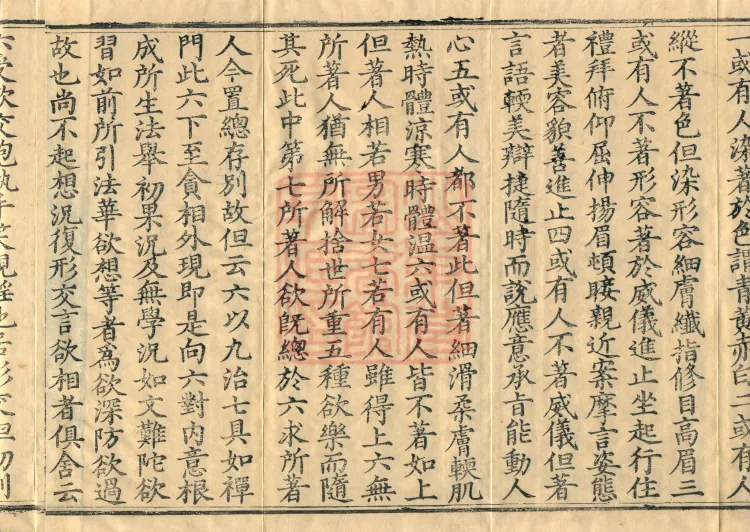 一或有人染著於色謂青黃赤白二或有人
縱不著色但染形容細膚纖指修目高眉三
或有人不著形容著於威儀進止坐起行住
禮拜俯仰屈伸揚眉頓睫親近案摩言姿態
者美容貌善進止四或有人不著威儀但著
言語輭美辯捷隨時而說應意承旨能動人
心五或有人都不著此但著細滑柔膚輭肌
熱時體涼寒時體温六或有人皆不著如上
但著人相若男若女七若有人雖得上六無
所著人猶無所解捨世所重五種欲樂而隨
其死此中第七所著人欲旣總於六求所著
人今置總存別故但云六以九治七具如禪
門此六下至貪相外現即是向六對內意根
成所生法舉初果況及無學況如文難陀欲
習如前所引法華欲想等者為欲深防欲過
故也尚不起想況復形交言欲相者俱舍云
六受欲交抱執手笑視婬也若形交但